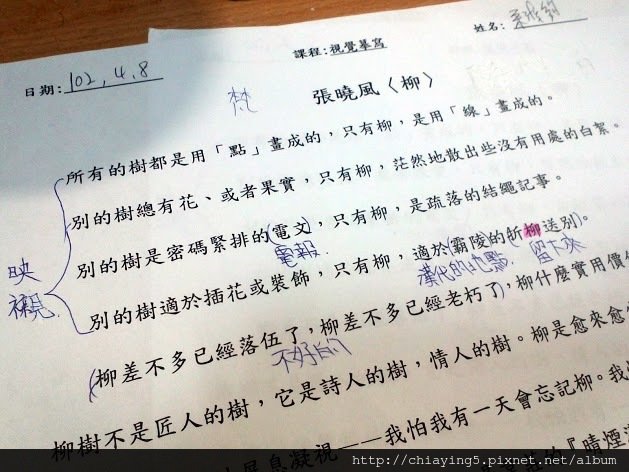 課程:視覺摹寫
姓名:
日期:102,4.8
梵
張曉風〈柳〉
所有的樹都是用「點」畫成的，只有柳，是用「線」畫成的。
別的樹總有花、或者果實，只有柳，茫然地散出些沒有用處的白絮。
別的樹是密碼緊排的(電文)，只有柳，是疏落的結繩記事。
電報
別的樹適於插花或裝飾，只有柳，適於(霸陵)的(折柳送別)。
漢代的地點 留下來
映襯
(柳差不多已經落伍了，柳差不多已經老朽了)，柳什麼實用價
不好的
柳樹不是匠人的樹，它是詩人的樹，情人的樹。柳是愈來愈
息凝視——我怕我有一天會忘記柳。我
的『晴煙
http://chiaying5.pixnet.net/album